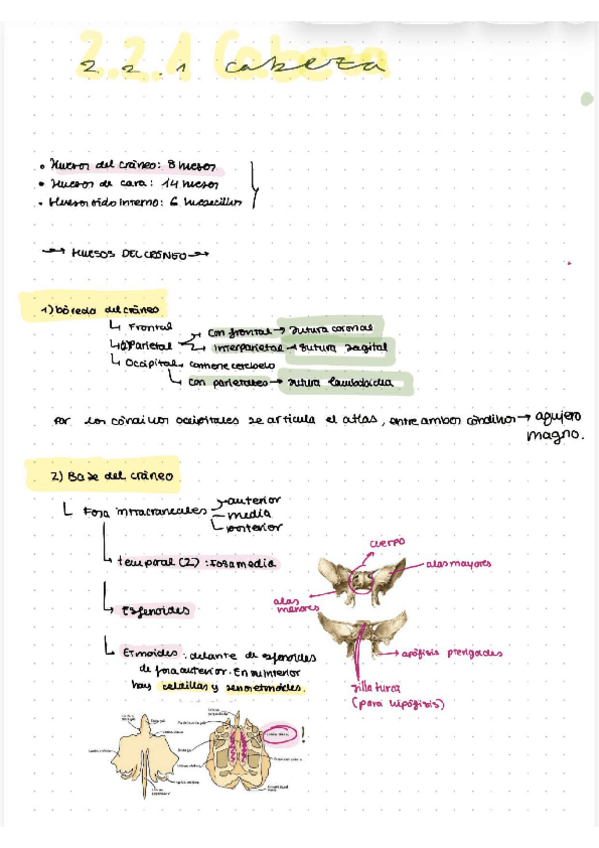 2.2.1 Cabeza
• Huesos del cráneo: 8 huesos
• Huesos de cara: 14 huesos
• Huesos oído interno: 6 huesecillos
HUESOS DEL CRÁNEO
1) bóveda del cráneo
↳ Frontal
↳ Parietal → con frontal → sutura coronal
→ interparietal → sutura sagital
↳ Occipital → contiene cerebelo
↳ con parietales → sutura lambdoidea
Por los cóndilos occipitales se articula el atlas, entre ambos cóndilos → agujero
magno.
2) Base del cráneo
↳ Fosa intracraneales → anterior
→ media
↳ posterior
↳ temporal (2): fosa media
↳ Esfenoides
↳ Etmoides: delante de esfenoides
de fosa anterior. En su interior
hay celdillas y senos etmoides.
cuerpo
alas mayores
alas
menores
apófisis pterigoides
silla turca
(para hipófisis)
!